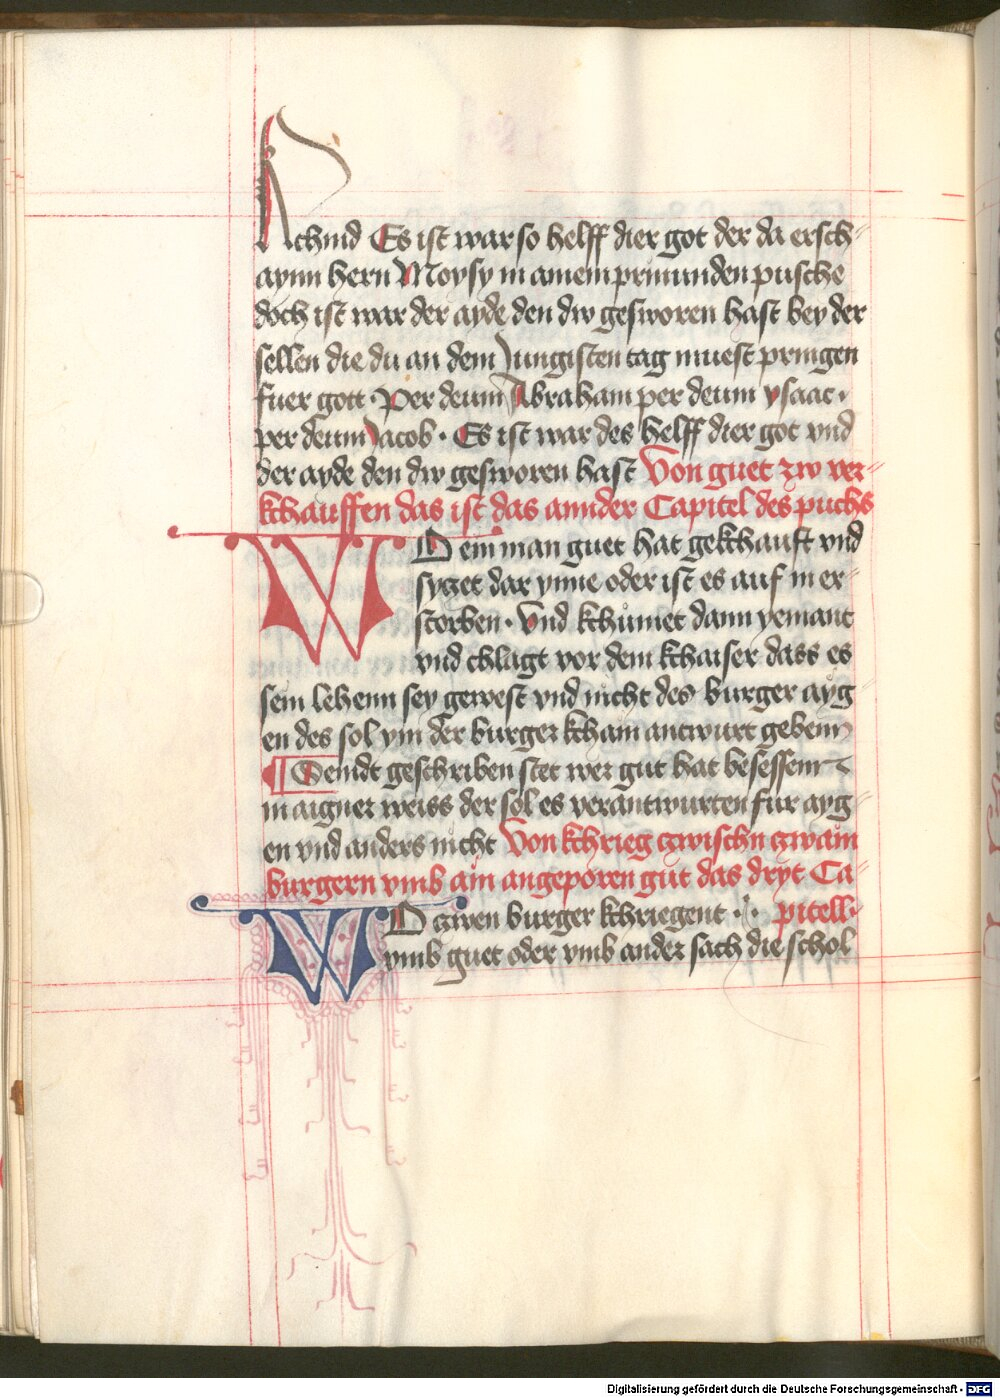 Achmd Es ist war so helff dier got der da ersch-
aynn hern Moysy in ainem prinunden pusche
doch ist war der ayde den dw gesworen hast bey der
sellen die du an dem Jungisten tag muest pringen
fuer gott · Per deum Abraham per deum ysaac ·
per deum Jacob · Es ist war des helff dier got vnd
der ayde den dw gesworen hast Von guet zw ver-
kchauffen das ist das annder Capitel des puchs
WO ein man guet hat gekchauft vnd
syczet dar ynne oder ist es auf in er-
storben · Vnd kchumet dann yemant
vnd chlagt vor dem kchaiser dass es
sein lehenn sey gewest vnd nicht des burger ayg-
en des sol vm der burger kchain antwurt gebenn
Wendt geschriben stet wer gut hat besessenn
in aigner weiss der sol es verantwurten fur ayg-
en vnd anders nicht Von kchrieg czwischn czwain
burgern vmb ain angeporen gut das dryt Ca-
WO czwen burger kchriegent · pitell ·
vmb guet oder vmb ander sach die schol
Digitalisierung gefördert durch die Deutsche Forschungsgemeinschaft - DFG